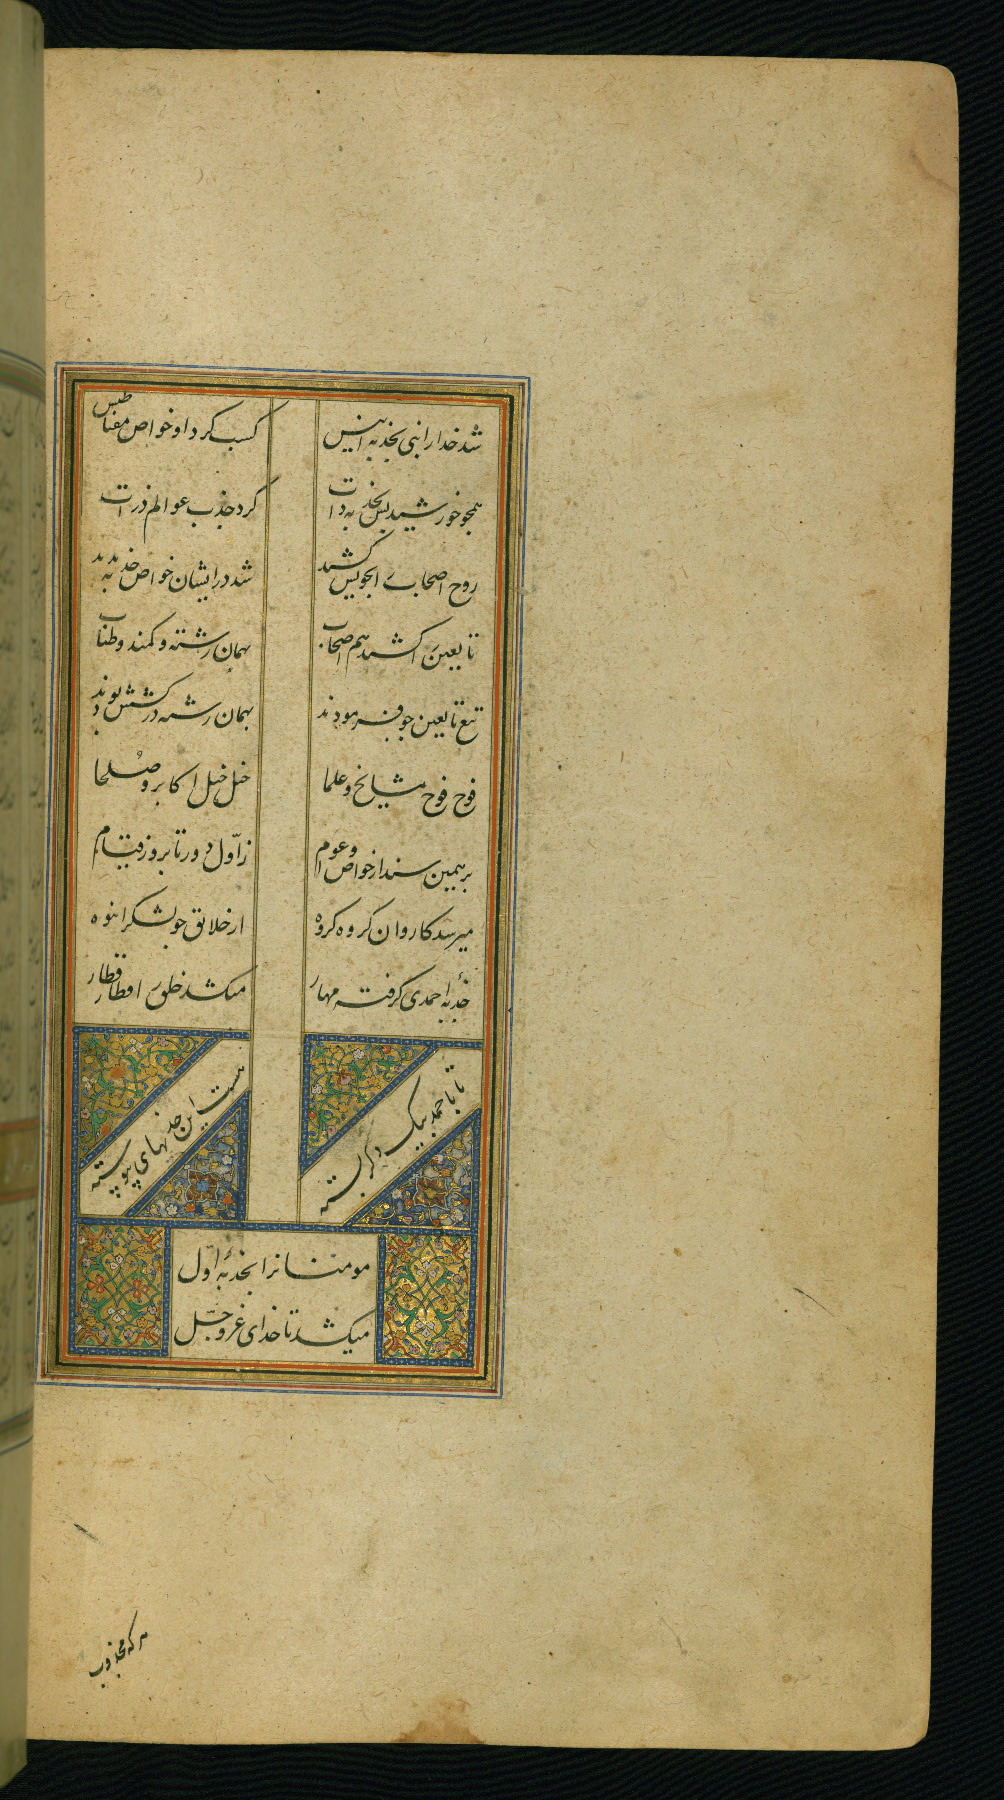 شد خدا را نبی بجذبه انیس
کسب کرد او خواص مغناطیس
همچو خورشید بس بجذبه ذات
کرد جذب عوالم ذرات
روح اصحاب را بخویش کشید
شد در ایشان خواص جذبه پدید
تابعین را کشند هم اصحاب
بهمان رشته و کمند و طناب
تبع تابعین چو فرمودند
بهمان رشته در کشش بودند
فوج فوج مشایخ و علما
خیل خیل اکابر و صلحا
بر همین سند از خواص و عوام
ز اول دور تا بروز قیام
میرسد کاروان گروه گروه
از خلایق چو لشکر انبوه
جذبه احمدی گرفته مهار
میکشد خلق را قطار قطار
تا باحمد بیک دگر بسته
هست این جذبهای پیوسته
مومنانرا بجذبه اول
میکشد تا خدای عز و جل
هر که مجذوب